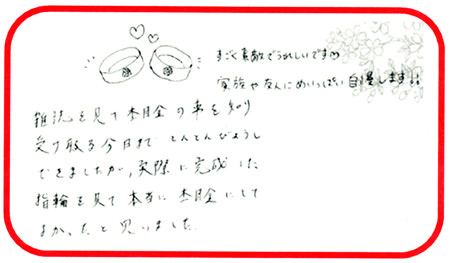 すごく素敵でうれしいです♡
家族や友人にめいっぱい自慢します!!
雑誌を見て杢目金の事を知り
受け取る今日まで とんとんびょうし
できましたが、実際に完成した
指輪を見て本当に杢目金にして
よかったと思いました。